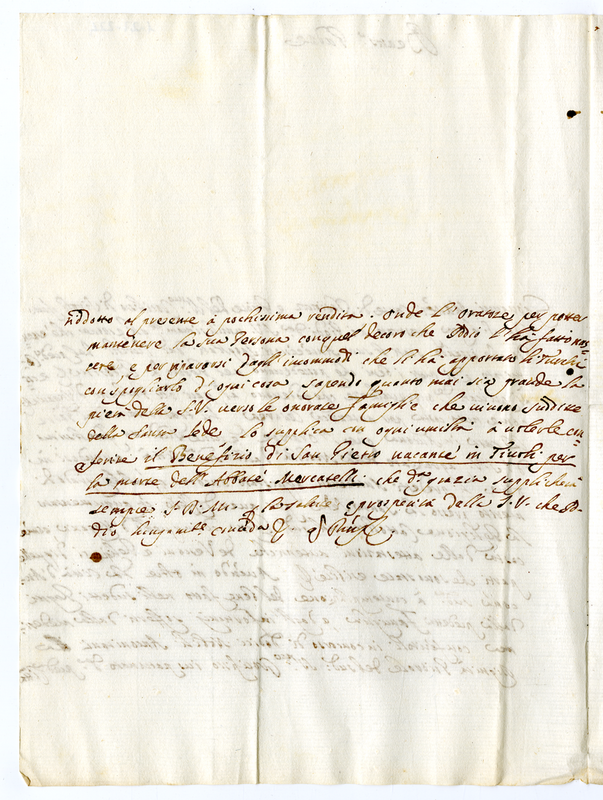 ridotto al presente à pochissima rendita: onde l'Oratore per poter
mantenere la sua Persona con quel decoro che Iddio l'hà fatto nas-
cere e per ripararsi dagli incommodi che li hà apportato li Turchi
con spogliarlo di ogni cosa, sapendo quanto mai sia grande la
pietà della S.V. verso le onorate famiglie che vivono suddite
della Santa Sede lo supplica con ogni umiltà à volerle con-
ferire il Benefizio di San Pietro vacante in per
la morte dell'Abbate Mercatelli che di tal grazia supplicherà
sempre S.D.M. per la salute e prosperità della S.V. che Id-
dio lungamte conceda &